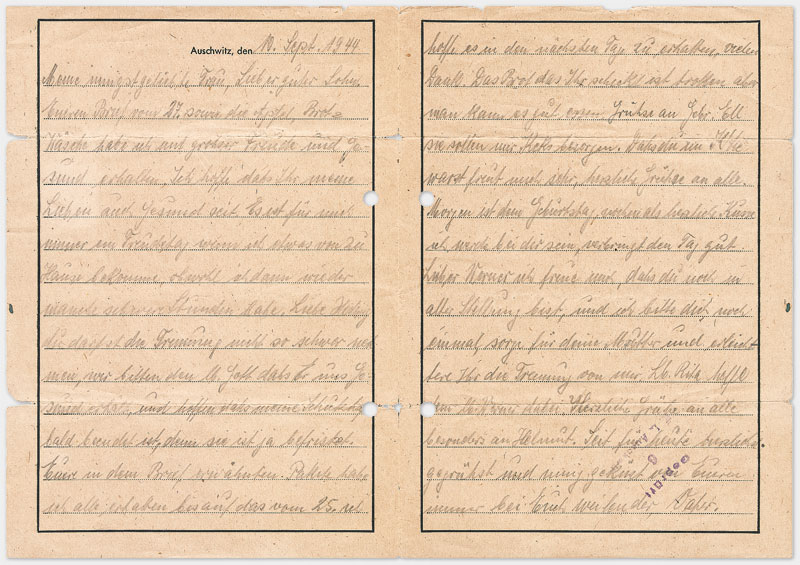 Auschwitz, den 10. Sept. 1944
Meine innigstgeliebte Frau, Lieber guter Sohn.
Eueren Brief vom 27. sowie die Apfel, Brot-
Wäsche habe ich mit groser Freude und Ge-
sund erhalten, Ich hoffe dahs Ihr meine
Lieben auch Gesund seit. Es ist für mich
immer ein Freudetag wenn ich etwas von zu
Hause bekomme, obwohl ich dann wieder
manche schwere Stunden habe. Liebe
du darfst die Trennung nicht so schwer neh-
men, wir bitten den Gott dahs Er uns Ge-
sund erhalt, und hoffen dahs meine Schutzhaft
bald beendet ist, denn sie ist ja befristet.
Eure in dem Brief erwähnten Pakete habe
ich alle erhalten bis auf das vom 25. ich
hoffe es in den nächsten Tage zu erhalten, vielen
Dank. Das Brot das Ihr schickt ist trocken aber
man kann es gut essen Grühse an Gebr. Ell
sie sollen mir Keks besorgen. Dahs du im
warst freut mich sehr, herzliche Grühse an alle.
Morgen ist dein Geburtstag nochmals herzliche Küsse
ich werde bei dir sein, verbringt den Tag gut.
Lieber Werner ich freue mich, dahs du noch in
alter Stellung bist, und ich bitte dich noch
einmal, sorge für deine Mutter und erleich-
tere Ihr die Trennung von mir. Lb. Rita
Werner Herzliche Grühse an alle
besonders an Helmut. Seit für heute herzlich
gegrühst und innig geküst von Eueren
immer bei Euch weilender Vater.
Geprüft